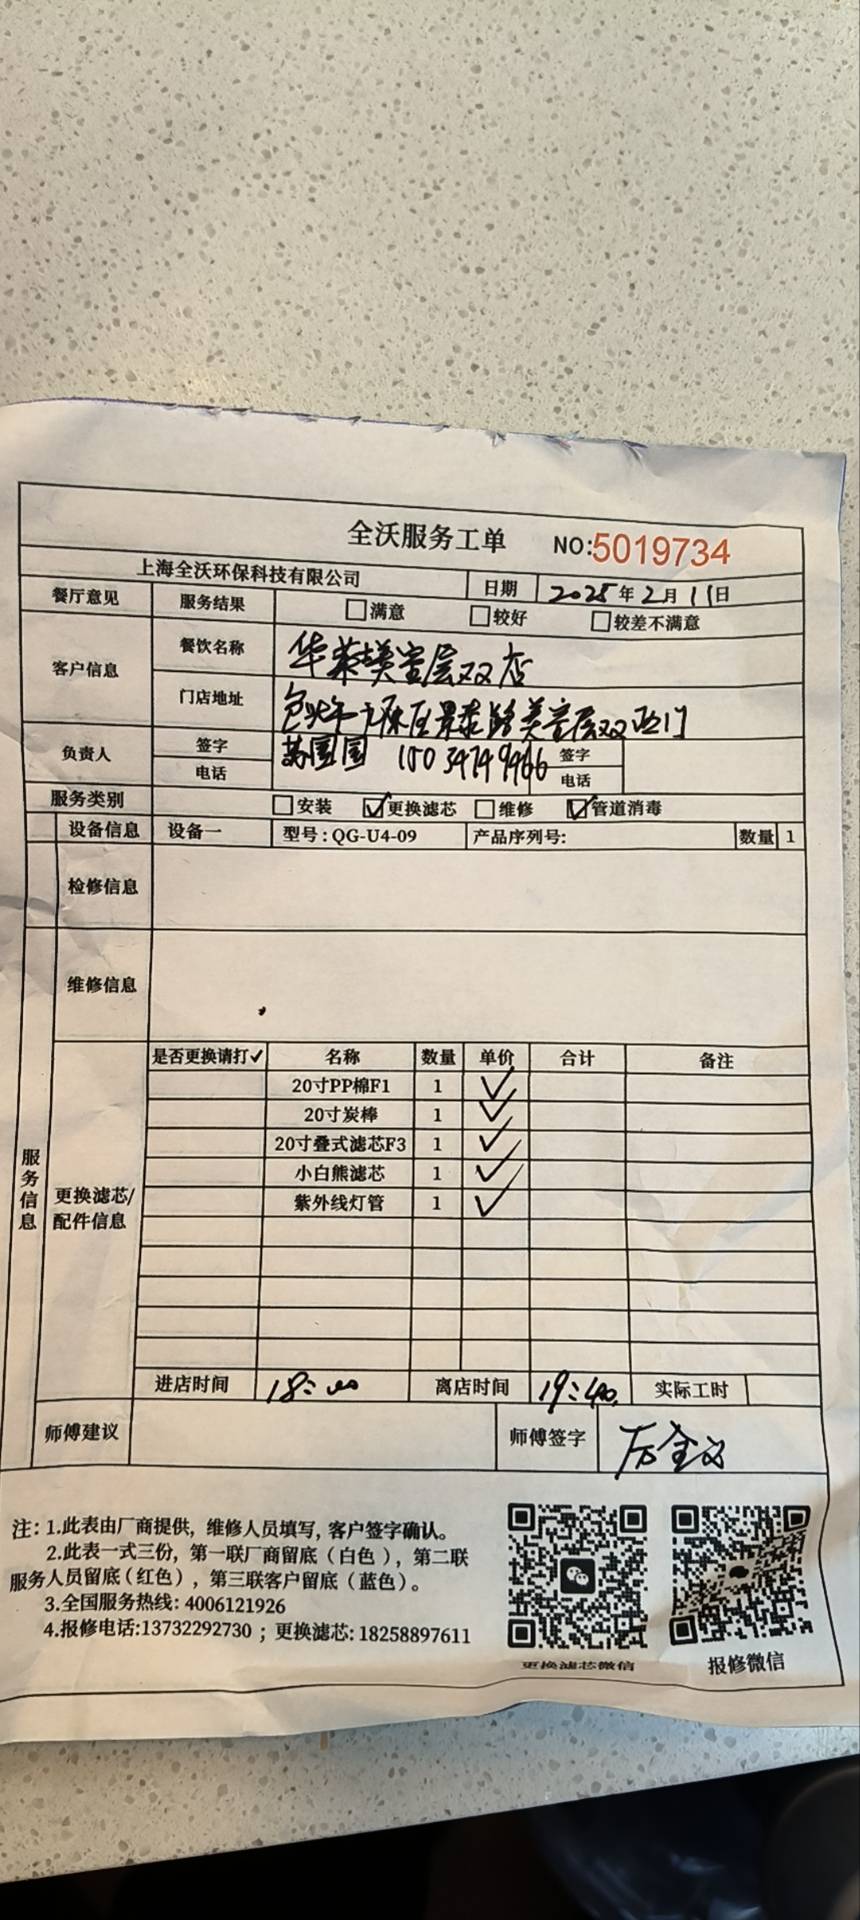 全沃服务工单 NO:5019734
上海全沃环保科技有限公司 日期 2025年2月11日
餐厅意见 服务结果 □满意 □较好 □较差不满意
客户信息 餐饮名称 华莱士美 店
门店地址 包头市 区 路美
负责人 签字 国国 15034749966 签字
电话 电话
服务类别 □安装 ☑更换滤芯 □维修 ☑管道消毒
设备信息 设备一 型号:QG-U4-09 产品序列号: 数量 1
检修信息
维修信息
服务信息
更换滤芯/配件信息
是否更换请打✓ 名称 数量 单价 合计 备注
20寸PP棉F1 1 ✓
20寸炭棒 1 ✓
20寸叠式滤芯F3 1 ✓
小白熊滤芯 1 ✓
紫外线灯管 1 ✓
进店时间 18:00 离店时间 19:40 实际工时
师傅建议 师傅签字
注:1.此表由厂商提供,维修人员填写,客户签字确认。
2.此表一式三份,第一联厂商留底(白色),第二联
服务人员留底(红色),第三联客户留底(蓝色)。
3.全国服务热线:4006121926
4.报修电话:13732292730;更换滤芯:18258897611
更换滤芯微信 报修微信